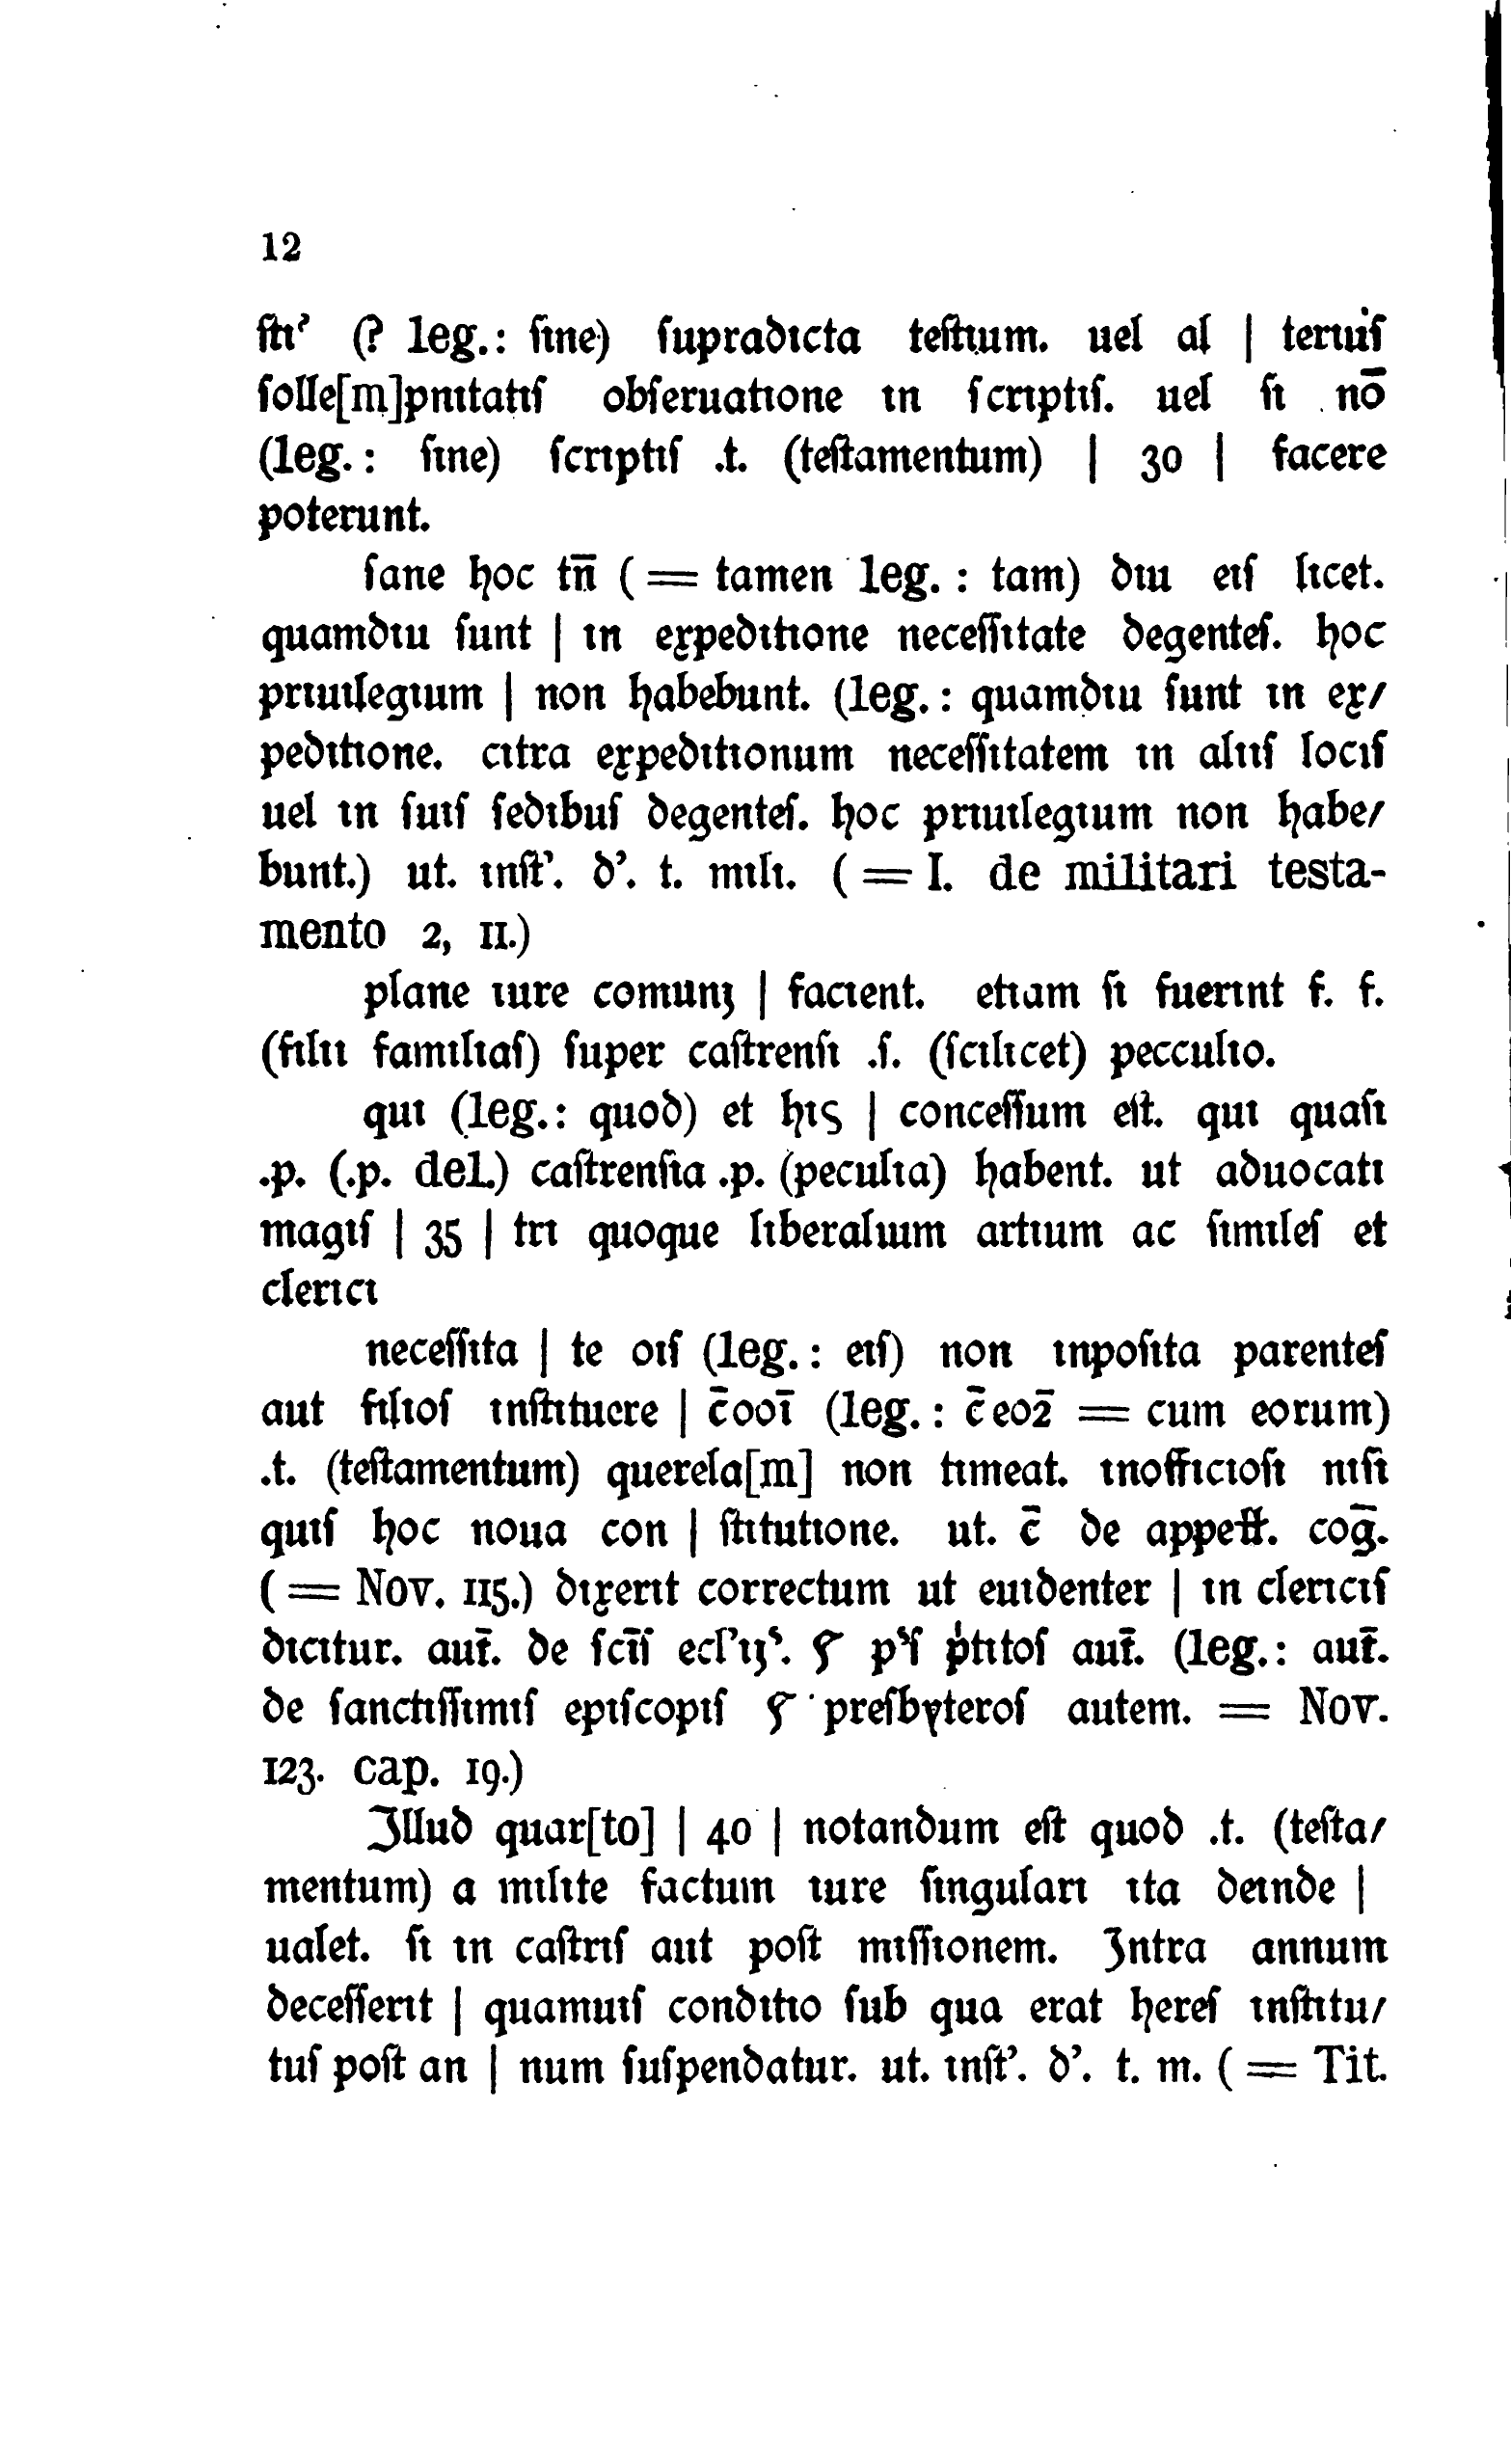 12
ſtı’ (? leg.: ſıne) ſupradıcta teſtıum. uel al | terıuſ
ſolle[m]pnıtatıſ obſeruatıone ın ſcrıptıſ. uel ſı nō
(leg.: ſıne) ſcrıptıſ .t. (teſtamentum) | 30 | facere
poterunt.
ſane hoc tn̄ (= tamen leg. : tam) dıu eıſ lıcet.
quamdıu ſunt | ın expedıtıone neceſſıtate degenteſ. hoc
prıuılegıum | non habebunt. (leg.: quamdıu ſunt ın ex/
pedıtıone. cıtra expedıtıonum neceſſıtatem ın alııſ locıſ
uel ın ſuıſ ſedıbuſ degenteſ. hoc prıuılegıum non habe/
bunt.) ut. ınſt’. d’. t. mılı. (= I. de militari testa-
mento 2, 11.)
plane ıure comunȷ | facıent. etıam ſı fuerınt f. f.
(fılıı famılıaſ) ſuper caſtrenſı .ſ. (ſcılıcet) pecculıo.
quı (leg.: quod) et hıs | conceſſum eſt. quı quaſı
.p. (.p. del.) caſtrenſıa .p. (peculıa) habent. ut aduocatı
magıſ | 35 | trı quoque lıberalıum artıum ac ſımıleſ et
clerıcı
neceſſıta | te oıſ (leg.: eıſ) non ınpoſıta parenteſ
aut fılıoſ ınſtıtuere | c̄ooı̄ (leg.: c̄ eo2̄ = cum eorum)
.t. (teſtamentum) querela[m] non tımeat. ınoffıcıoſı nıſı
quıſ hoc noua con | ſtıtutıone. ut. c̄ de appeƚƚ. coḡ.
(= Nov. 115.) dıxerıt correctum ut euıdenter | ın clerıcıſ
dıcıtur. aut̄. de ſcı̄ſ ecl’ıȷ’. § pͥſ ṗtıtoſ aut̄. (leg.: aut̄.
de ſanctıſſımıſ epıſcopıſ § preſbyteroſ autem. = Nov.
123. cap. 19.)
Illud quar[to] | 40 | notandum eſt quod .t. (teſta/
mentum) a mılıte factum ıure ſınguları ıta deınde |
ualet. ſı ın caſtrıſ aut poſt mıſſıonem. Intra annum
deceſſerıt | quamuıſ condıtıo ſub qua erat hereſ ınſtıtu/
tuſ poſt an | num ſuſpendatur. ut. ınſt’. d’. t. m. (= Tit.